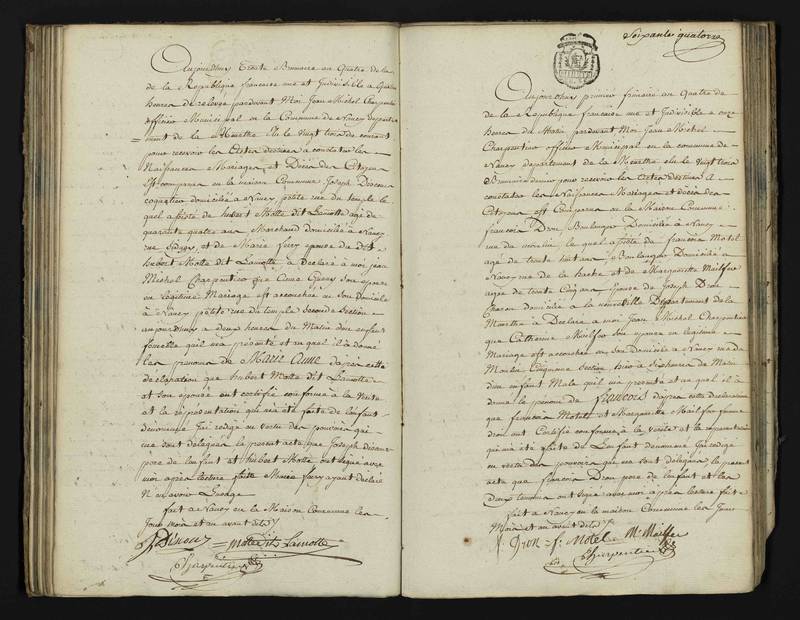 Aujourdhui Trente Brumaire an Quatre de la
de la République francoise une et Indivisible a Quatre
heures de relevé pardevant Moi Jean Michel Charpentier
officier Municipal en la Commune de Nancy departe
=ment de la Meurthe Elu le vingt trois du courant
pour recevoir les Actes destinés a constater les
Naissances Mariages et Décès des Citoyens
Est comparu en la maison Commune Joseph
coquetier domicilié a Nancy petite rue du temple le
quel assisté de hubert Motte dit Lamotte agé de
quarante quatre ans Marchand domicilié a Nancy
rue et de Marie fery epouse du dit
hubert Motte dit Lamotte a Déclaré a moi jean
Michel Charpentier que son epouse
en légitime Mariage est accouchée en son domicile
a Nancy petite rue du temple seconde section
aujourdhui a deux heures du Matin d'un enfant
femelle quil ma présenté et au quel il a donné
les prenoms de Marie Anne d'apres cette
declaration que hubert Motte dit Lamotte
et son epouse ont certifié conforme a la vérité
et la représentation qui ma été faite de l'enfant
denommé Jai redigé en vertu des pouvoirs qui
me sont delegués le present acte que Joseph
pere de l'enfant et hubert Motte ont signé avec
moi apres lecture faite Marie fery ayant declaré
N'en avoir L'usage
fait a Nancy en la Maison Commune les
Jour mois et an avant dits
Motte dit Lamotte
Charpentier
Soixante quatorze
Aujourdhui premier frimaire an quatre de
de la Republique francoise une et Indivisible a onze
heures du Matin pardevant Moi Jean Michel
Charpentier officier Municipal en la commune de
Nancy departement de la Meurthe elu le vingt trois
Brumaire dernier pour recevoir les Actes destinés a
constater les Naissances Mariages et décès des
Citoyens est Comparu en la Maison Commune
francois Dron Boulanger Domicilié a Nancy
rue du le quel assisté de francois Motel
agé de trente huit ans Boulanger Domicilié a
Nancy rue de la hache et de Marguerite Mailfer
agée de trente ans épouse de Joseph Dron
Charon domiciliée a la neuveville Département de la
Meurthe a Déclaré a moi Jean Michel Charpentier
que Catherine Mailfer son epouse en legitime
Mariage est accouchée en son domicile a Nancy rue du
Moulin section hier a six heures du Matin
d'un enfant Male quil ma presenté et au quel il a
donné le prenom de francois d'apres cette declaration
que francois Motel et Marguerite Mailfer femme
Dron ont Certifié conforme a la verité et la representation
qui ma été faite de L'enfant denommé Jai redigé
en vertu des pouvoirs qui me sont delegués le present
acte que francois Dron pere de l'enfant et les
deux temoins ont signé avec moi apres lecture faite
fait a Nancy en la maison Commune les Jour
Mois et an avant dits
f. Dron = f. Motel = M. Mailfer
Charpentier